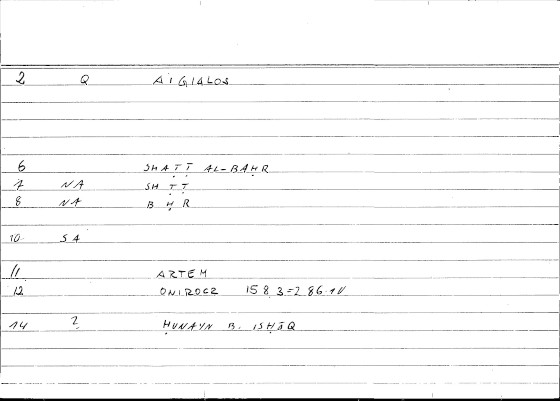 2 Q AIGIALOS
6 SHAṬṬ AL-BAḤR
7 NA SHṬṬ
8 NA BḤR
10 SA
11 ARTEM
12 ONIROCR 158 3=286.1V
14 2 ḤUNAYN B. ISḤĀQ